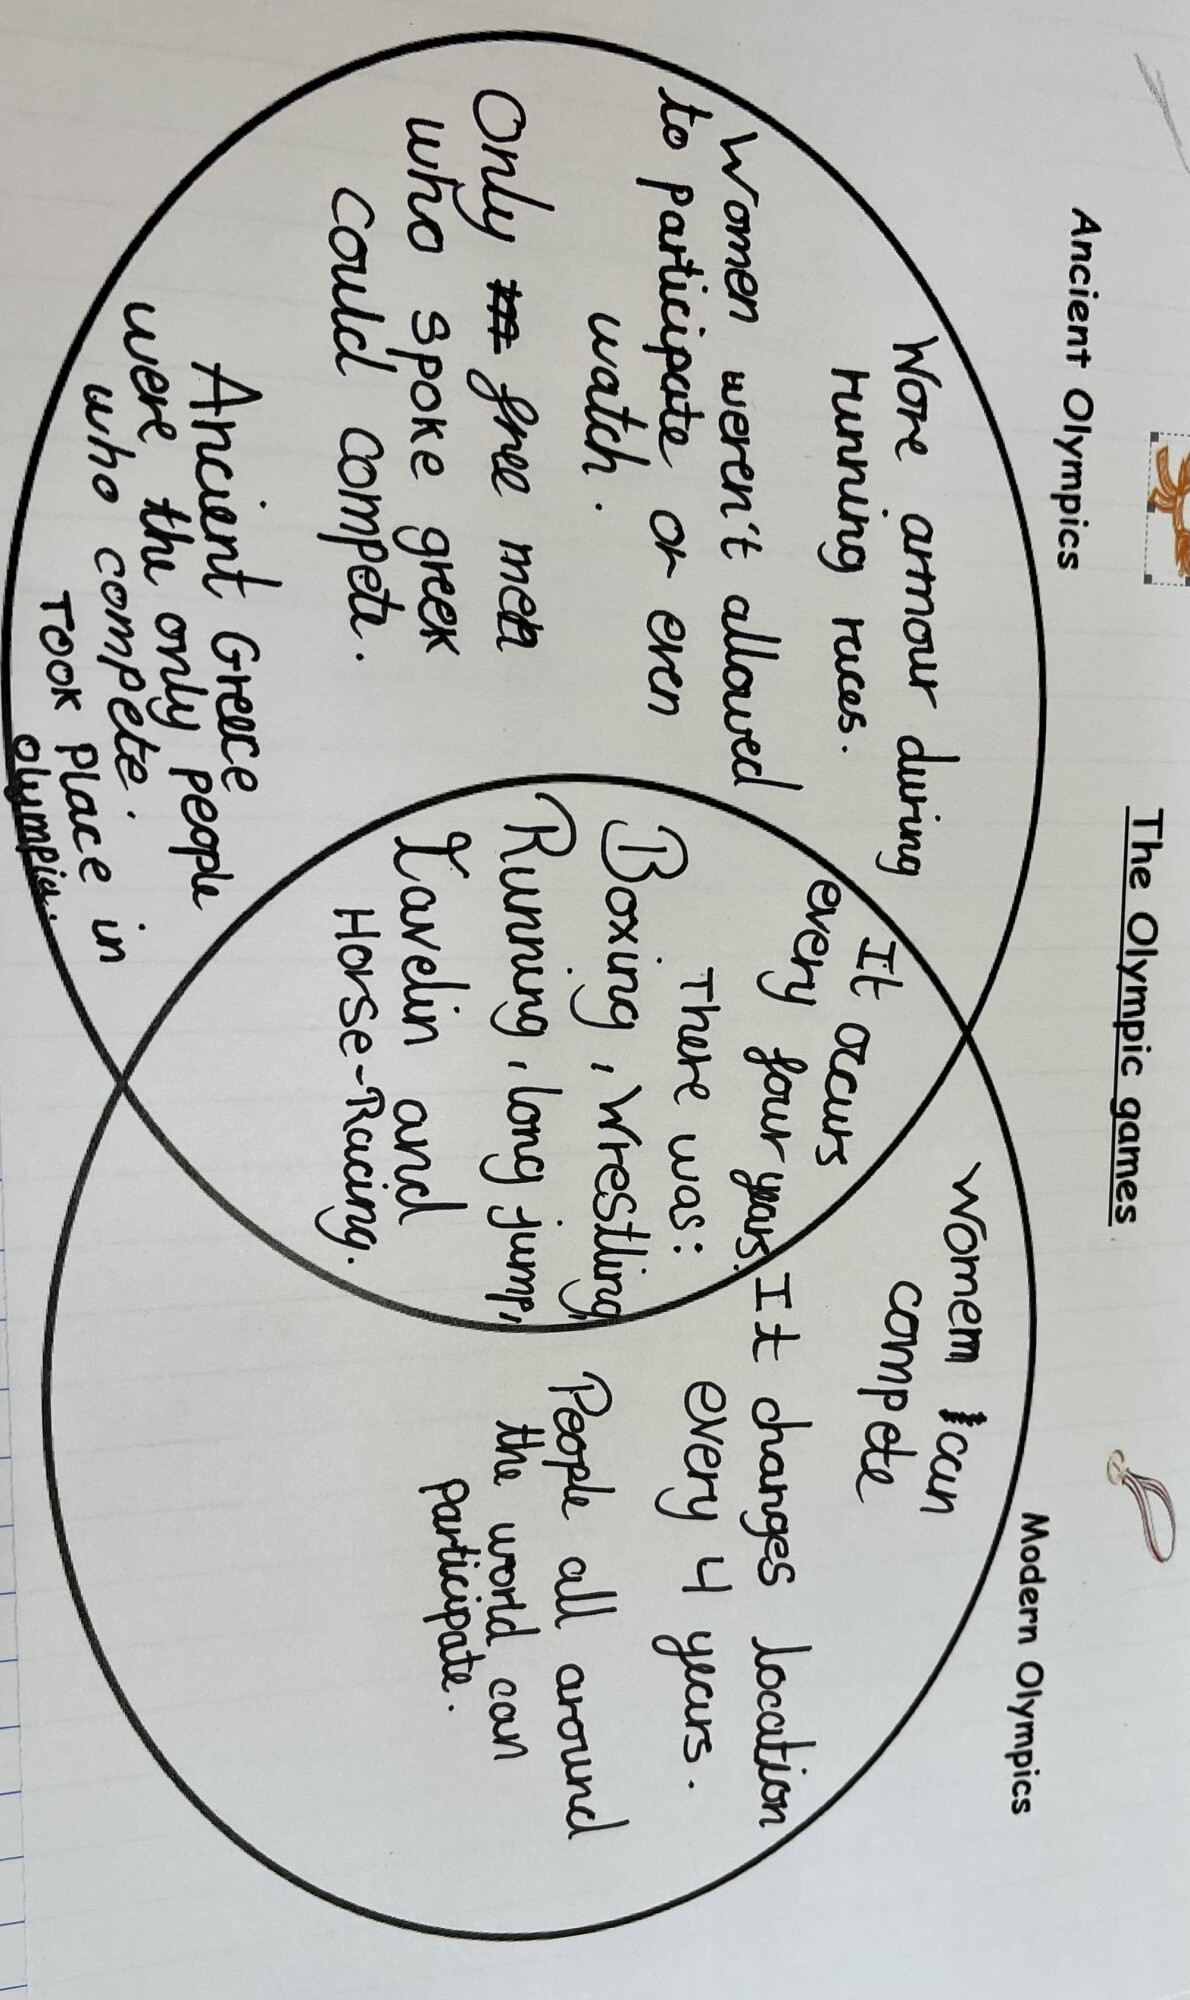 The Olympic games
Ancient Olympics
Modern Olympics
Wore armour during
running races.
Women weren't allowed
to participate or even
watch.
Only free men
who spoke greek
could compete.
Ancient Greece
were the only people
who compete.
Took place in
olympia.
It occurs
every four years.
There was:
Boxing, Wrestling,
Running, long jump,
Javelin and
Horse-Racing.
Women can
compete
It changes location
every 4 years.
People all around
the world can
participate.